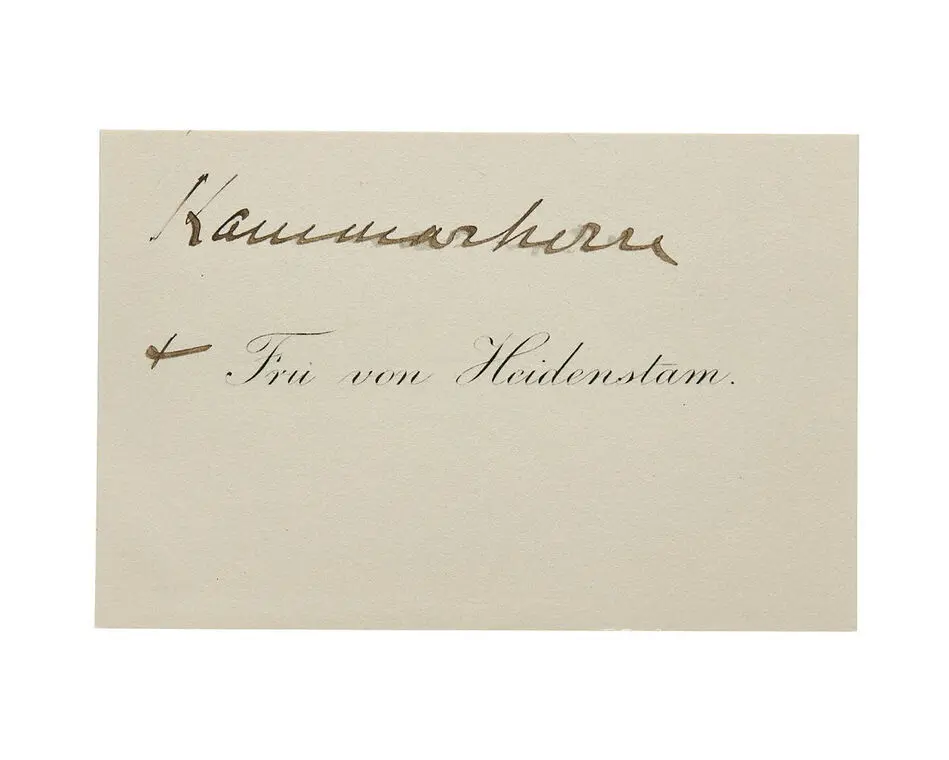 Kammarherre
+ Fru von Heidenstam.